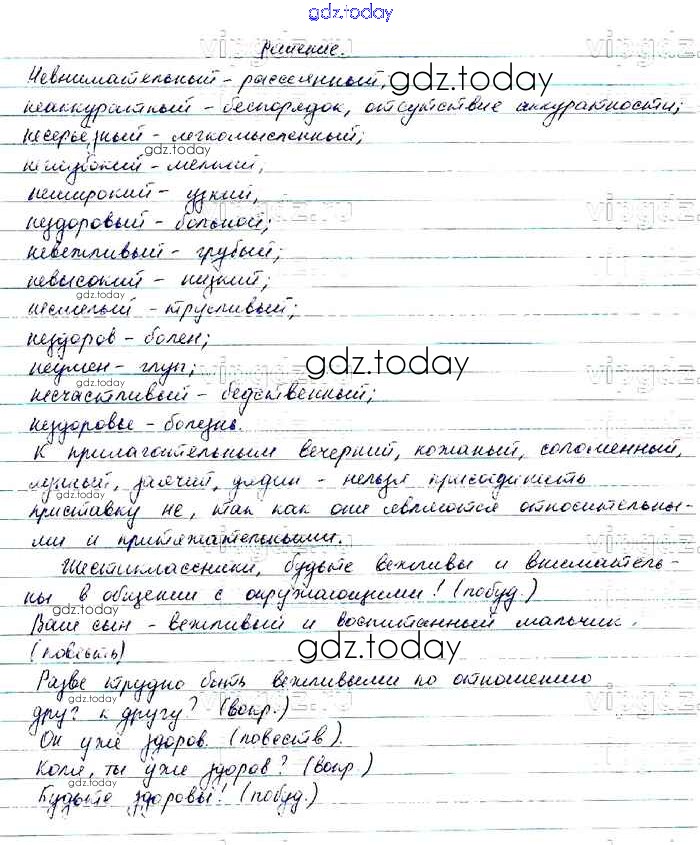 gdz.today
Решение.
Невнимательный - рассеянный,
неаккуратный - беспорядок, отсутствие аккуратности;
несерьёзный - легкомысленный;
неглубокий - мелкий,
неширокий - узкий,
нездоровый - больной;
невежливый - грубый;
невысокий - низкий;
несмелый - трусливый;
нездоров - болен;
неумен - глуп;
несчастливый - бедственный;
нездоровье - болезнь.
К прилагательным вечерний, кожаный, соломенный,
лунный, заячий, дядин - нельзя присоединить
приставку не, так как они являются относительны-
ми и притяжательными.
Шестиклассники, будьте вежливы и вниматель-
ны в общении с окружающими! (побуд.)
Ваш сын - вежливый и воспитанный мальчик.
(повесть)
Разве трудно быть вежливыми по отношению
друг к другу? (вопр.)
Он уже здоров. (повеств).
Коля, ты уже здоров? (вопр.)
Будьте здоровы! (побуд.)